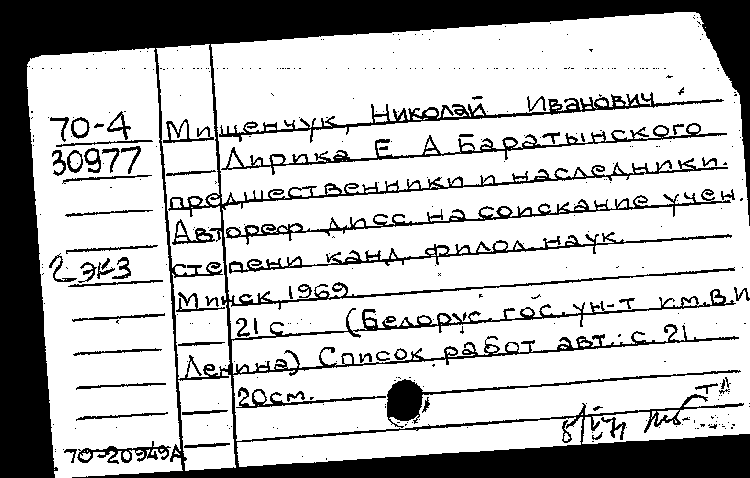 70-4 Мищенчук, Николай Иванович
30977 Лирика Е А Баратынского
предшественники и наследники.
Автореф дисс. на соискание учен.
2 экз степени канд. филол. наук.
Минск, 1969.
21 с. (Белорус. гос. ун-т им. В.И
Ленина) Список работ авт.: с. 21.
20см.
ТА
70-20949А